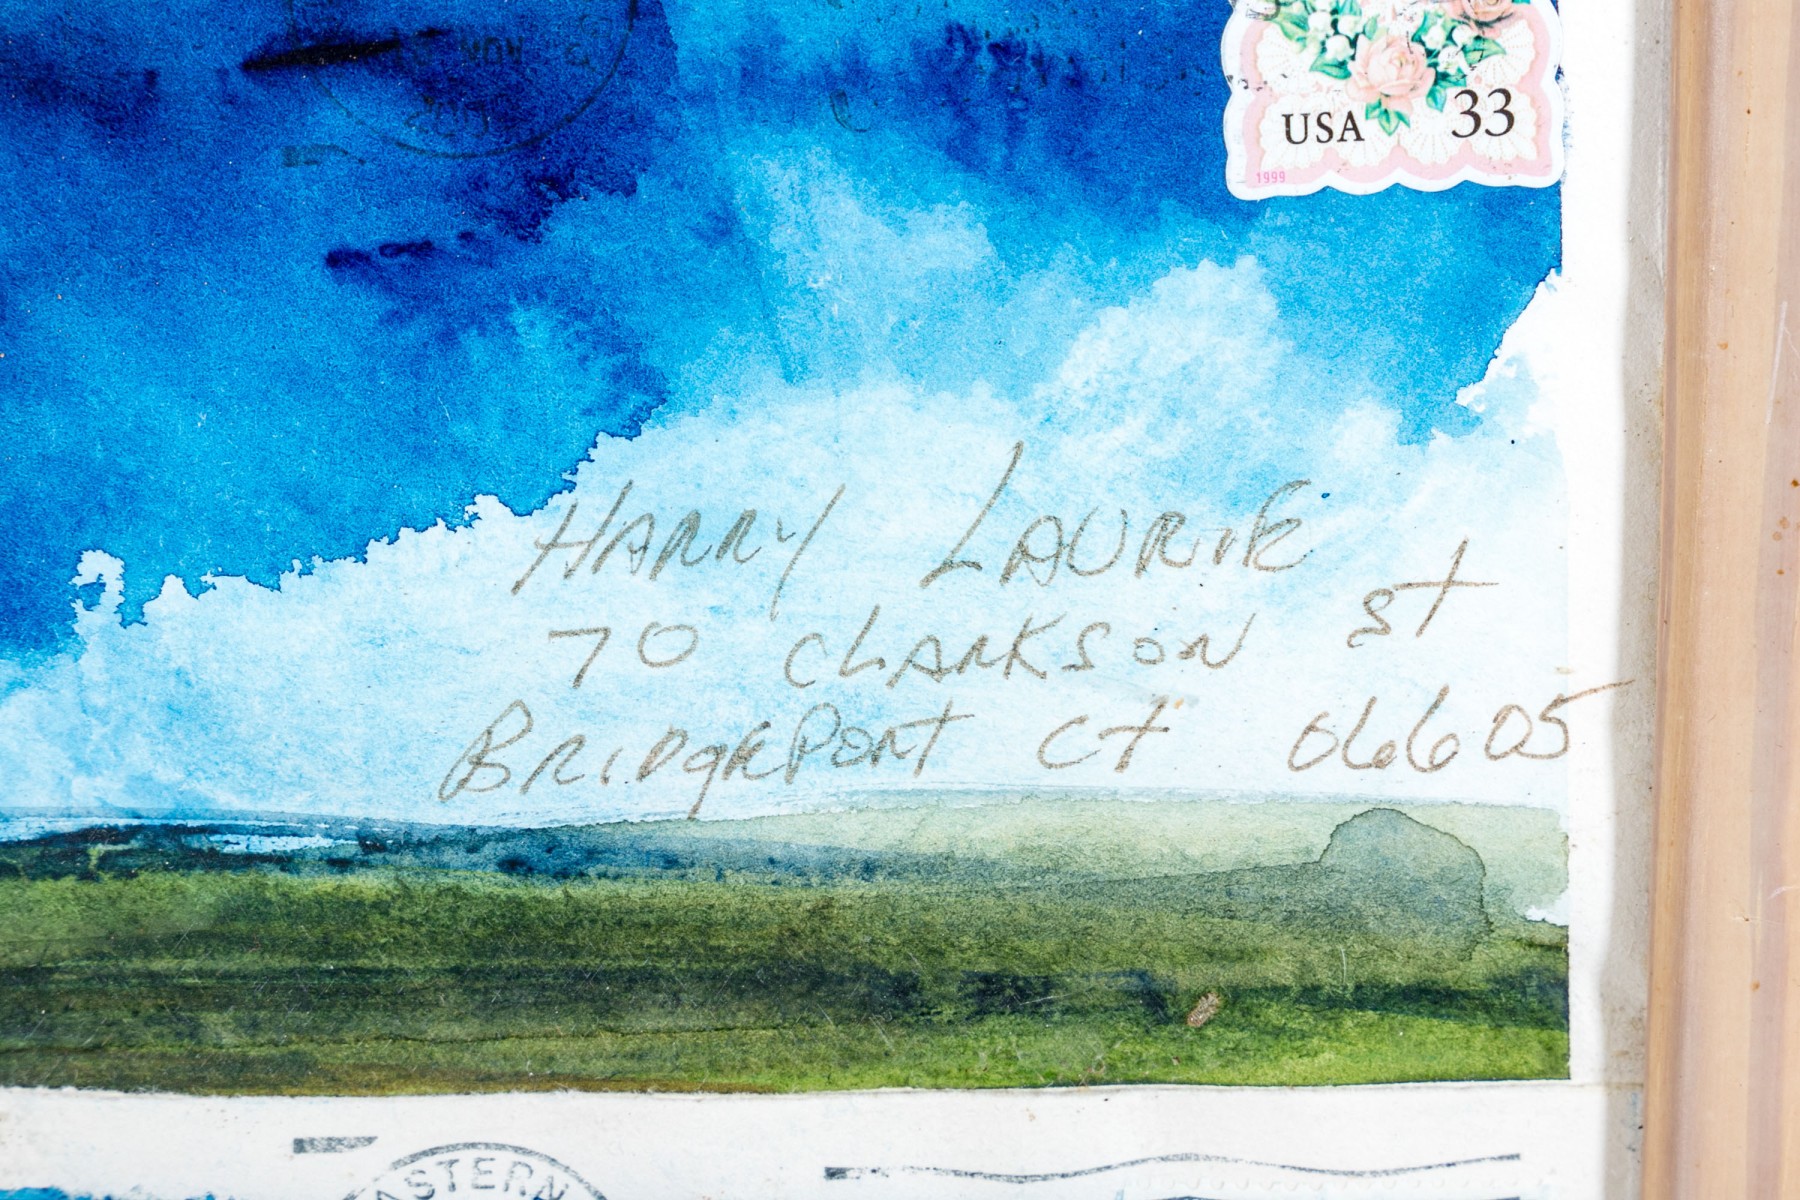 NOV
USA 33
1999
HARRY LAURIE
70 CLARKSON St
BRIDGEPORT Ct 06605
EASTERN